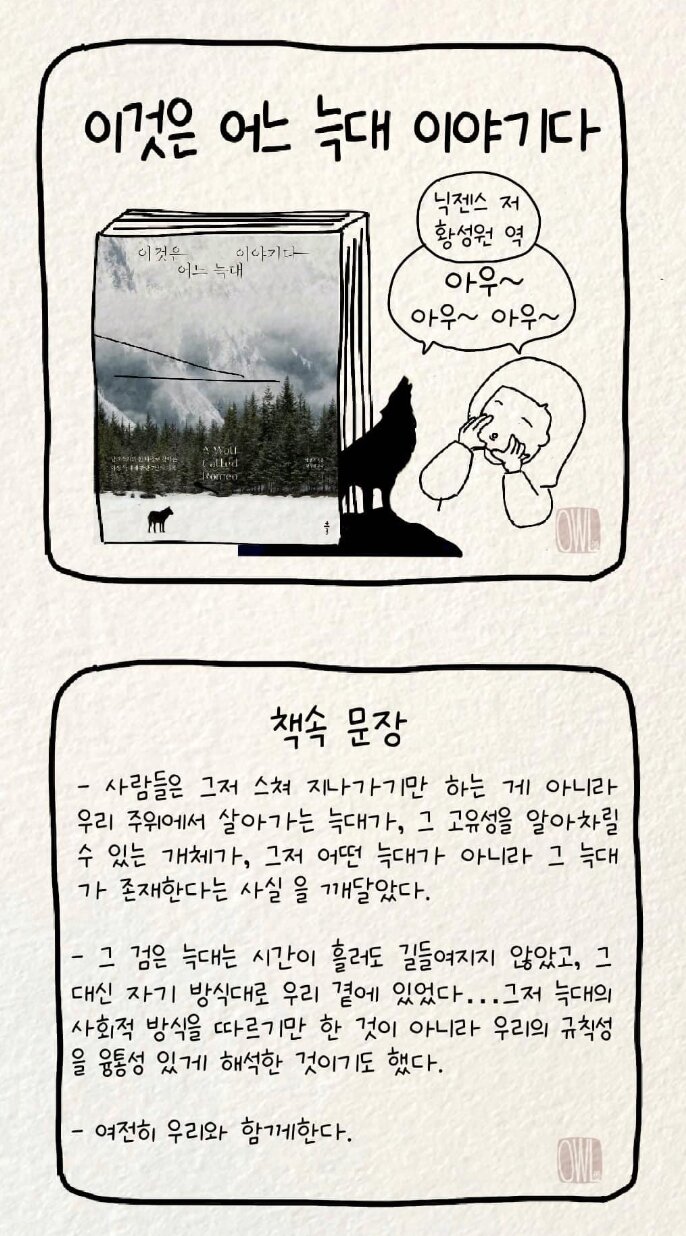 이것은 어느 늑대 이야기다
닉젠스 저
황성원 역
아우~
아우~ 아우~
이것은 이야기다
어느 늑대
A Wolf
Called
Romeo
OWL
책속 문장
- 사람들은 그저 스쳐 지나가기만 하는 게 아니라
우리 주위에서 살아가는 늑대가, 그 고유성을 알아차릴
수 있는 개체가, 그저 어떤 늑대가 아니라 그 늑대
가 존재한다는 사실 을 깨달았다.
- 그 검은 늑대는 시간이 흘러도 길들여지지 않았고, 그
대신 자기 방식대로 우리 곁에 있었다...그저 늑대의
사회적 방식을 따르기만 한 것이 아니라 우리의 규칙성
을 융통성 있게 해석한 것이기도 했다.
- 여전히 우리와 함께한다.
OWL